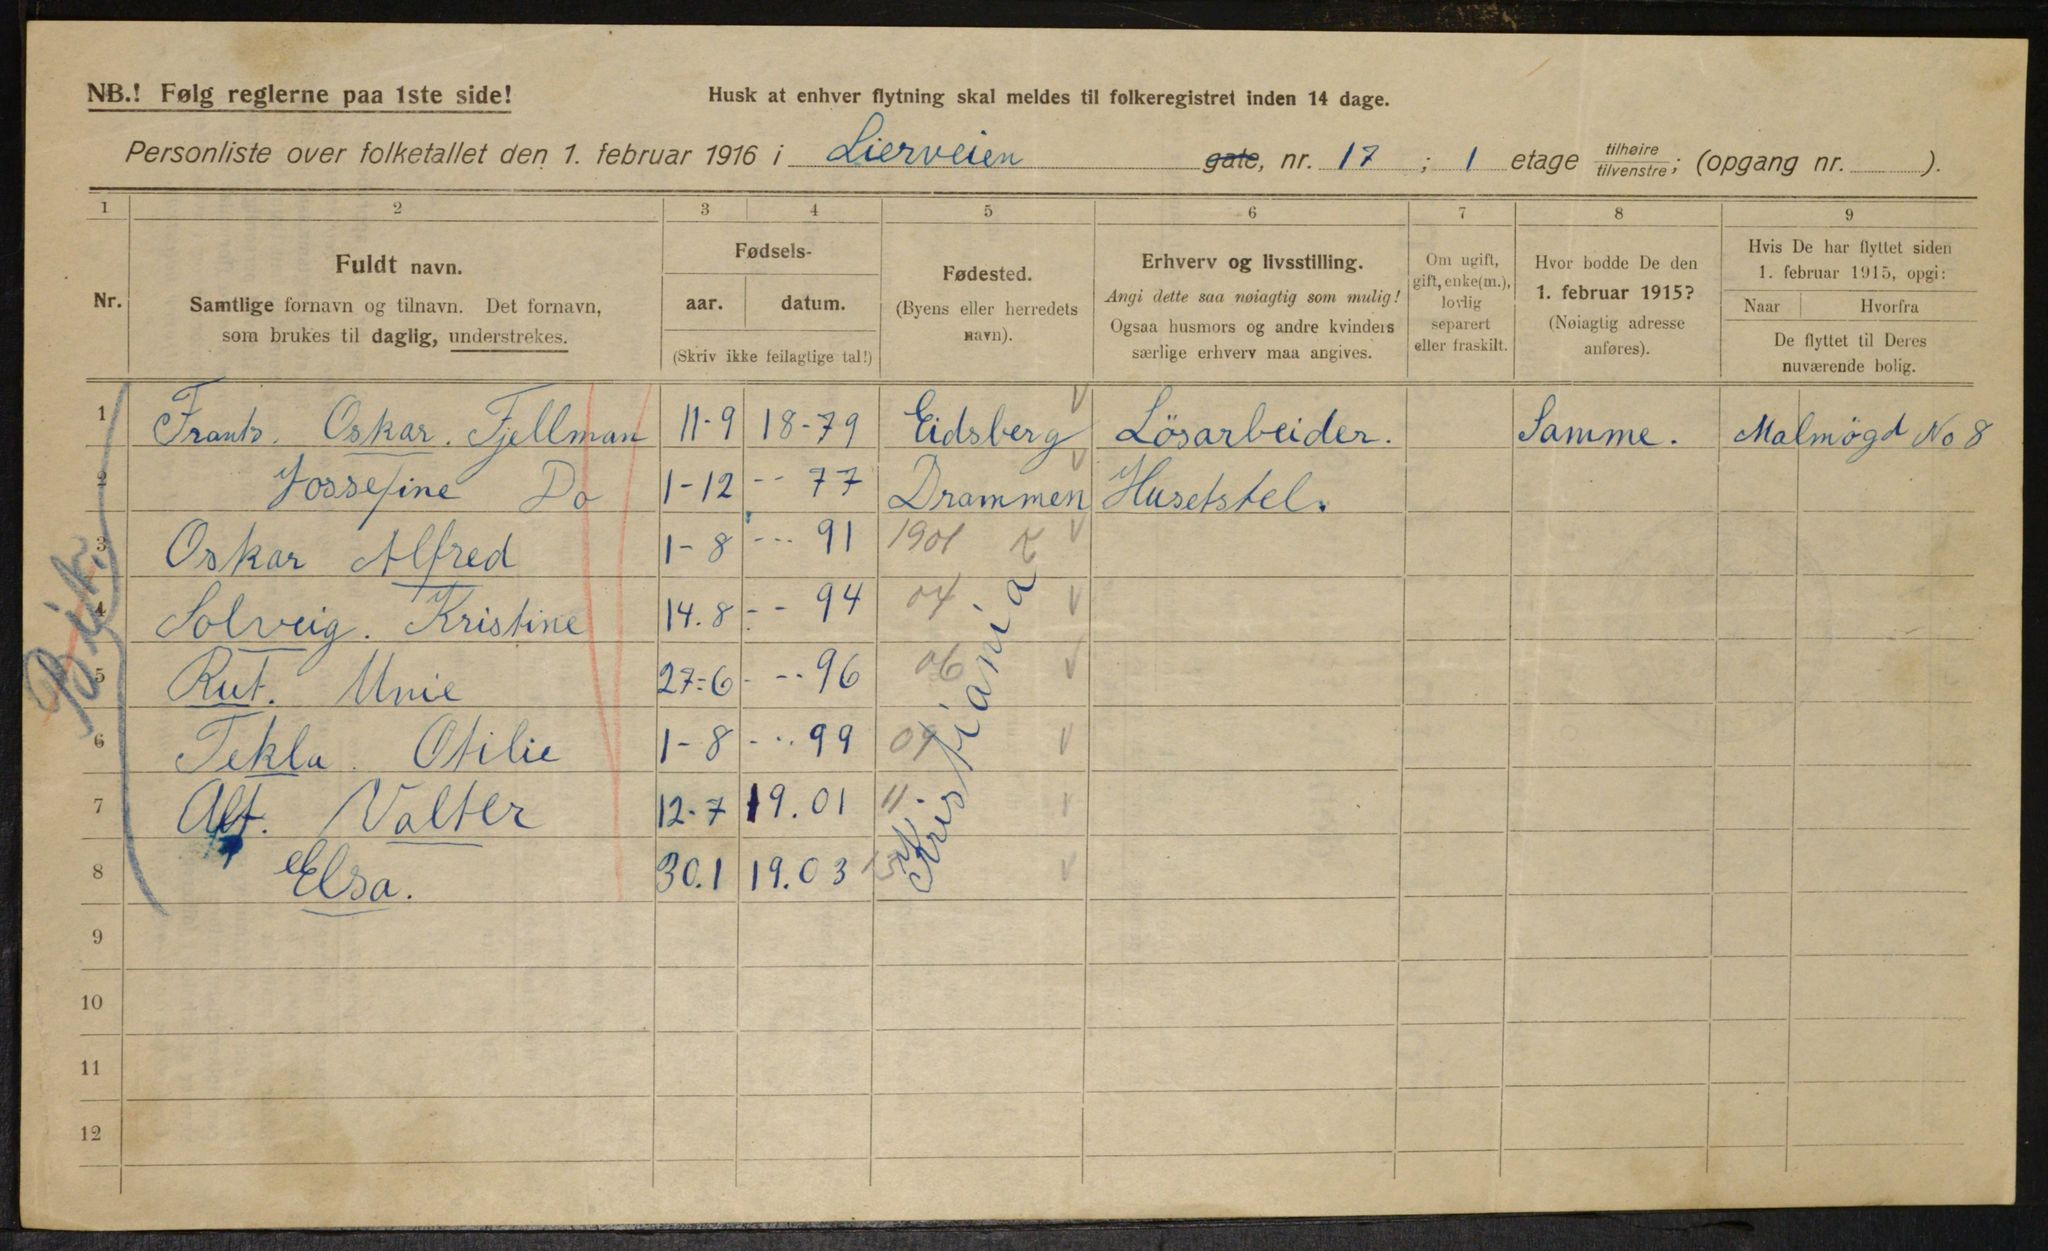 NB.! Følg reglerne paa 1ste side!
Husk at enhver flytning skal meldes til folkeregistret inden 14 dage.
Personliste over folketallet den 1. februar 1916 i Lierveien gate, nr. 17 ; 1 etage tilhøire tilvenstre; (opgang nr. ).
1 2 3 4 5 6 7 8 9
Nr.
Fuldt navn.
Samtlige fornavn og tilnavn. Det fornavn,
som brukes til daglig, understrekes.
Fødsels-
aar. datum.
(Skriv ikke feilagtige tal!)
Fødested.
(Byens eller herredets
navn).
Erhverv og livsstilling.
Angi dette saa nøiagtig som mulig!
Ogsaa husmors og andre kvinders
særlige erhverv maa angives.
Om ugift,
gift, enke(m.),
lovlig
separert
eller fraskilt.
Hvor bodde De den
1. februar 1915?
(Nøiagtig adresse
anføres).
Hvis De har flyttet siden
1. februar 1915, opgi:
Naar Hvorfra
De flyttet til Deres
nuværende bolig.
1 Frants. Oskar. Fjellman 11-9 18-79 Eidsberg Lösarbeider. Samme. Malmøgd No 8
2 Jossefine Do 1-12 -- 77 Drammen Husetstel.
3 Oskar Alfred 1-8 --- 91 1901
4 Solveig. Kristine 14.8 -- 94 04
5 Rut. Unie 27-6 --- 96 06
6 Tekla. Otilie 1-8 --- 99 09
7 Alf. Valter 12-7 19.01 11
8 Elsa. 30.1 19.03 13
Kristiania
9
10
11
12